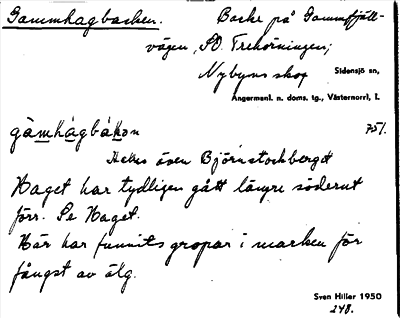 Gammhagbacken. Backe på Gammfjäll-
vägen, SO. Trehörningen;
Nybyns skog Sidensjö sn,
Ångermanl. n. doms. tg., Västernorrl. l.
gàmhágbákən 75/.
Heter även Björnstockberget
Haget har tydligen gått längre söderut
förr. Se Haget.
Här har funnits gropar i marken för
fångst av älg.
Sven Hiller 1950
248.